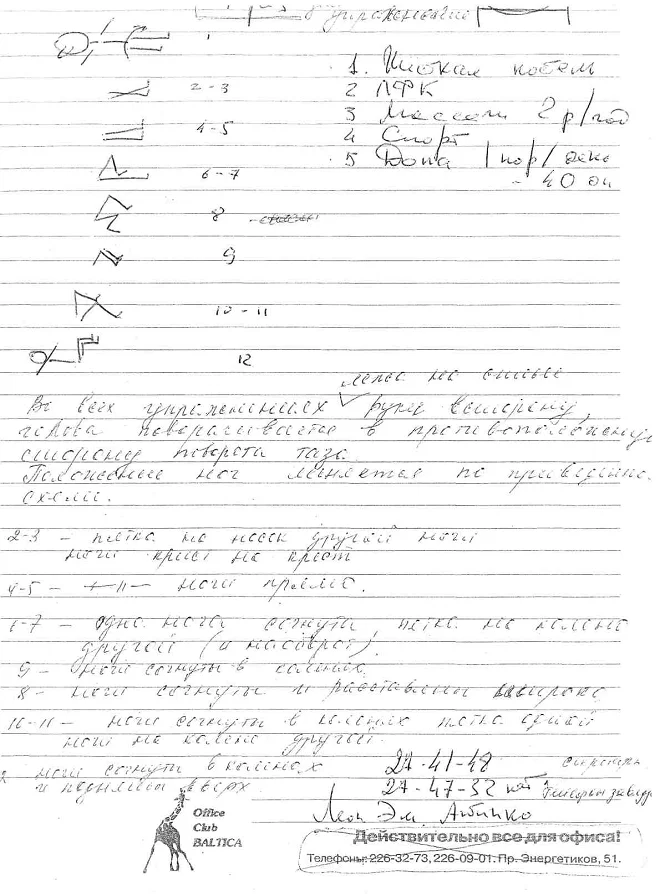 упражнение
1. Низкая
2 ЛФК
2-3
3 Массаж 2 р/год
4 Спорт
4-5
5 Дона 1 пор/день
6-7
- 40 дн
8
9
10-11
12
лежа на спине
Во всех упражнениях руки в сторону,
голова поворачивается в противоположную
сторону поворота таза.
Положение ног меняется по приведенной
схеме.
2-3 - пятка на носок другой ноги
ноги крест на крест
4-5 - -"- ноги прямо.
6-7 - одна нога согнута, пятка на колено
другой (и наоборот)
9 - ноги согнуты в коленях
8 - ноги согнуты и расставлены широко
10-11 - ноги согнуты в коленях пятка одной
ноги на колене другой.
ноги согнуты в коленях 27-41-48
и подняты вверх 27-47-32
Office
Club
BALTICA
Действительно все для офиса!
Телефоны: 226-32-73, 226-09-01. Пр. Энергетиков, 51.